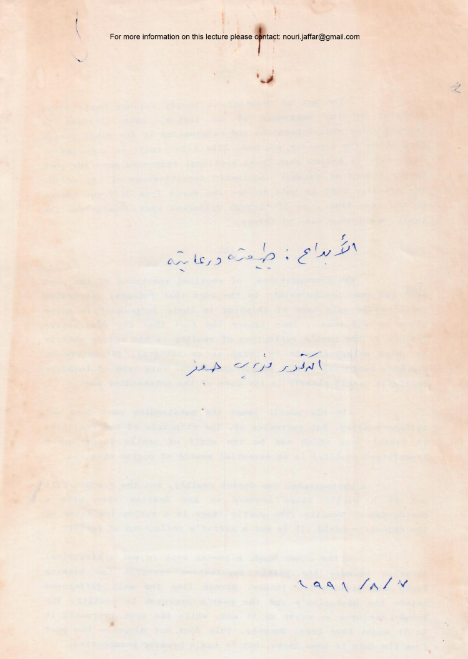 For more information on this lecture please contact: nouri.jaffar@gmail.com
الأبداع : طبيعته ورعايته
الدكتور نوري جعفر
١٩٩١/٨/٧